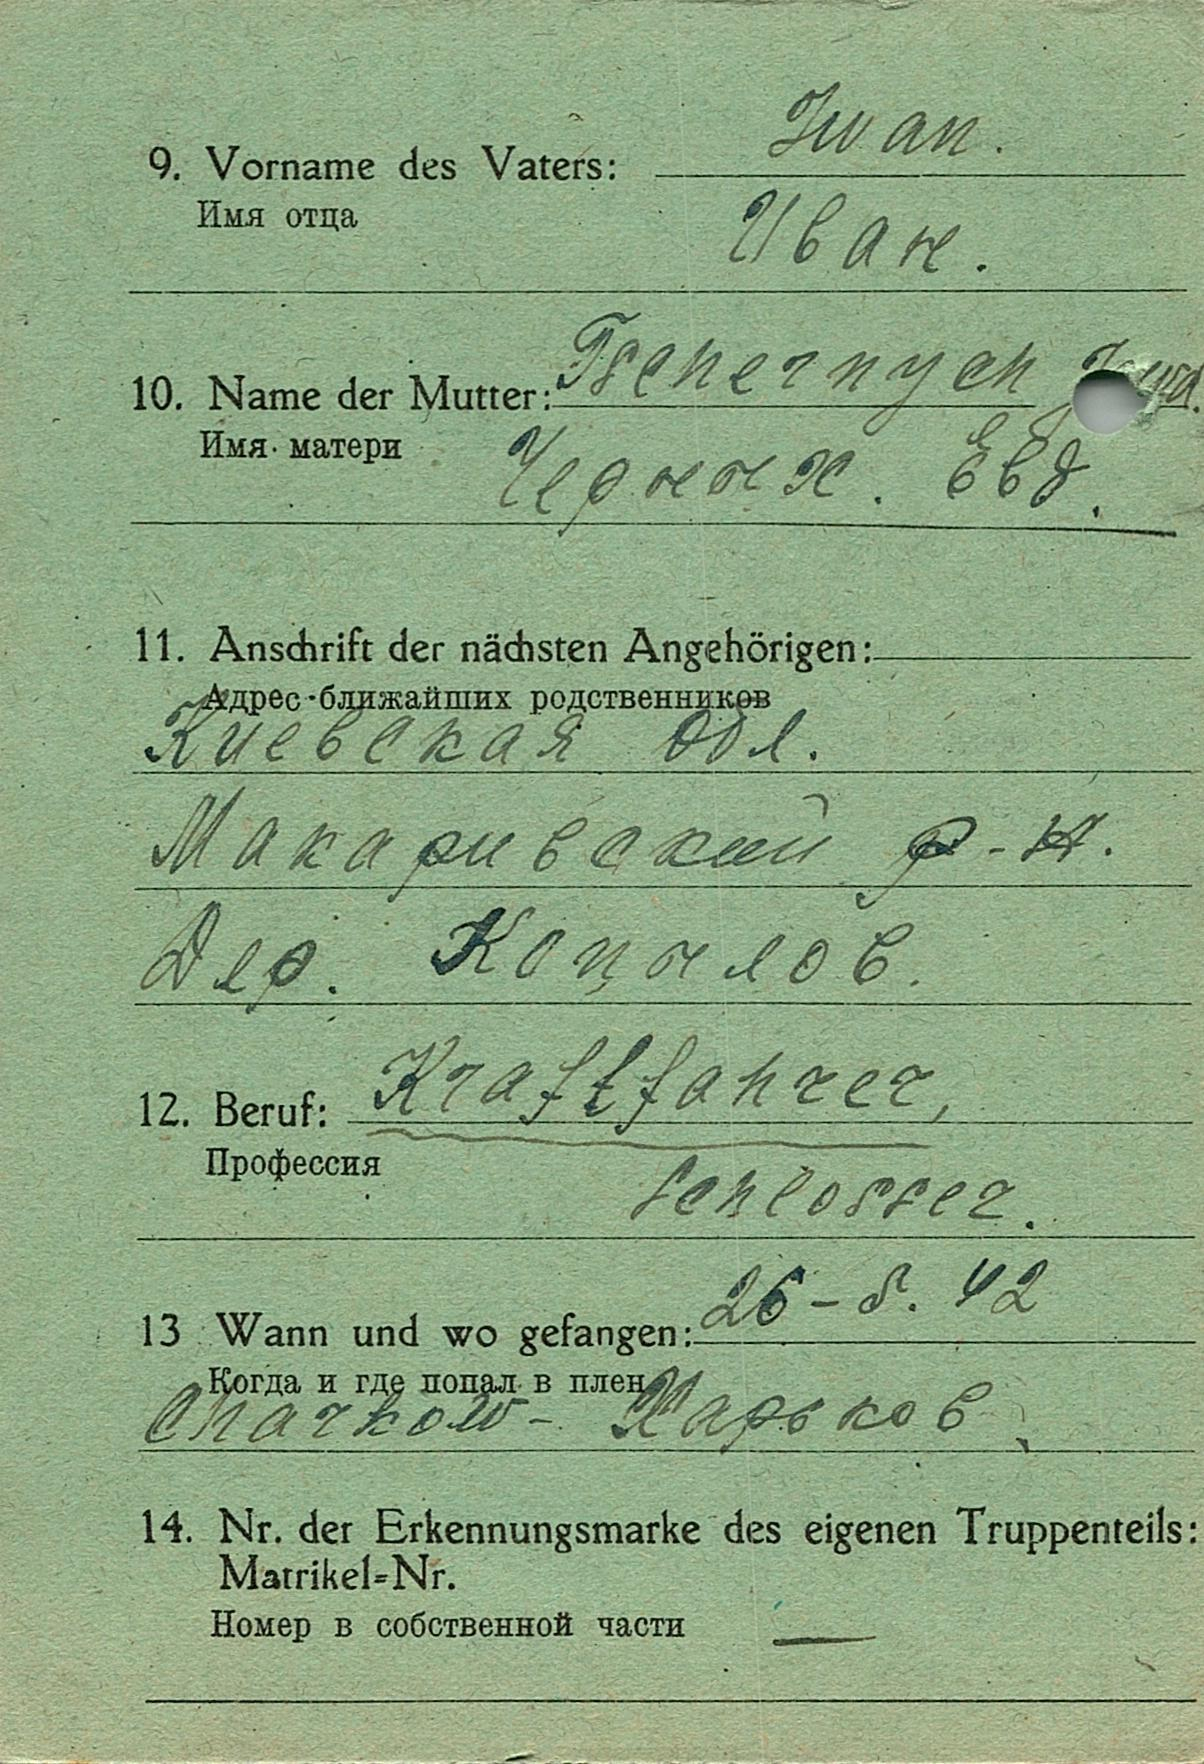 Iwan.
9. Vorname des Vaters:
Имя отца
Иван.
10. Name der Mutter: Tschernych
Имя матери
Черных. Евд.
11. Anschrift der nächsten Angehörigen:
Адрес ближайших родственников
Киевская обл.
Макаривский р-н.
Дер. Копылов.
12. Beruf: Kraftfahrer,
Профессия
Schlosser.
13 Wann und wo gefangen: 26-5.42
Когда и где попал в плен
Charkow- Харьков
14. Nr. der Erkennungsmarke des eigenen Truppenteils:
Matrikel=Nr.
Номер в собственной части —